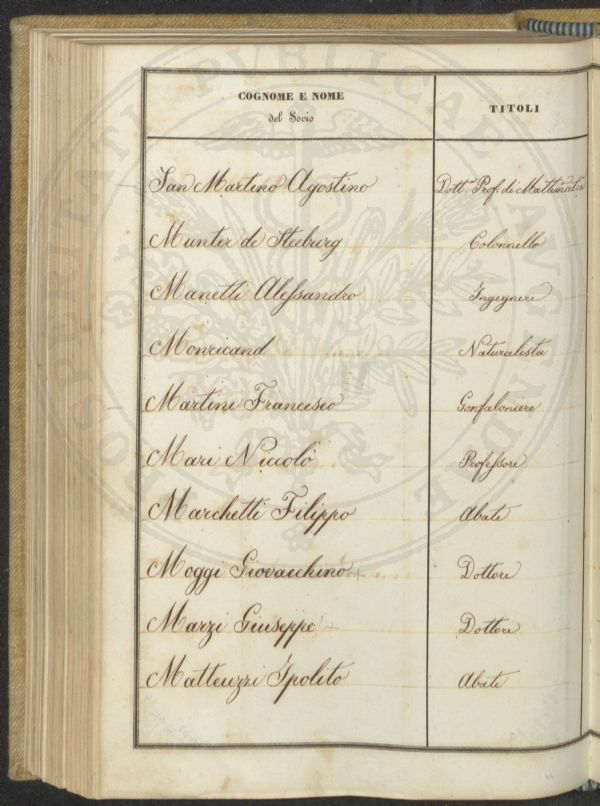 COGNOME E NOME
del Socio
TITOLI
San Martino Agostino Dott.e Prof. di Mattemat.a
Munter de Steeburg Colonnello
Manetti Alessandro Ingegnere
Monricand Naturalista
Martini Francesco Gonfaloniere
Mari Niccolò Professore
Marchetti Filippo Abate
Moggi Giovacchino Dottore
Marzi Giuseppe Dottore
Matteuzzi Ipolito Abate
PROSPERITATI PUBLICAE AUGENDAE